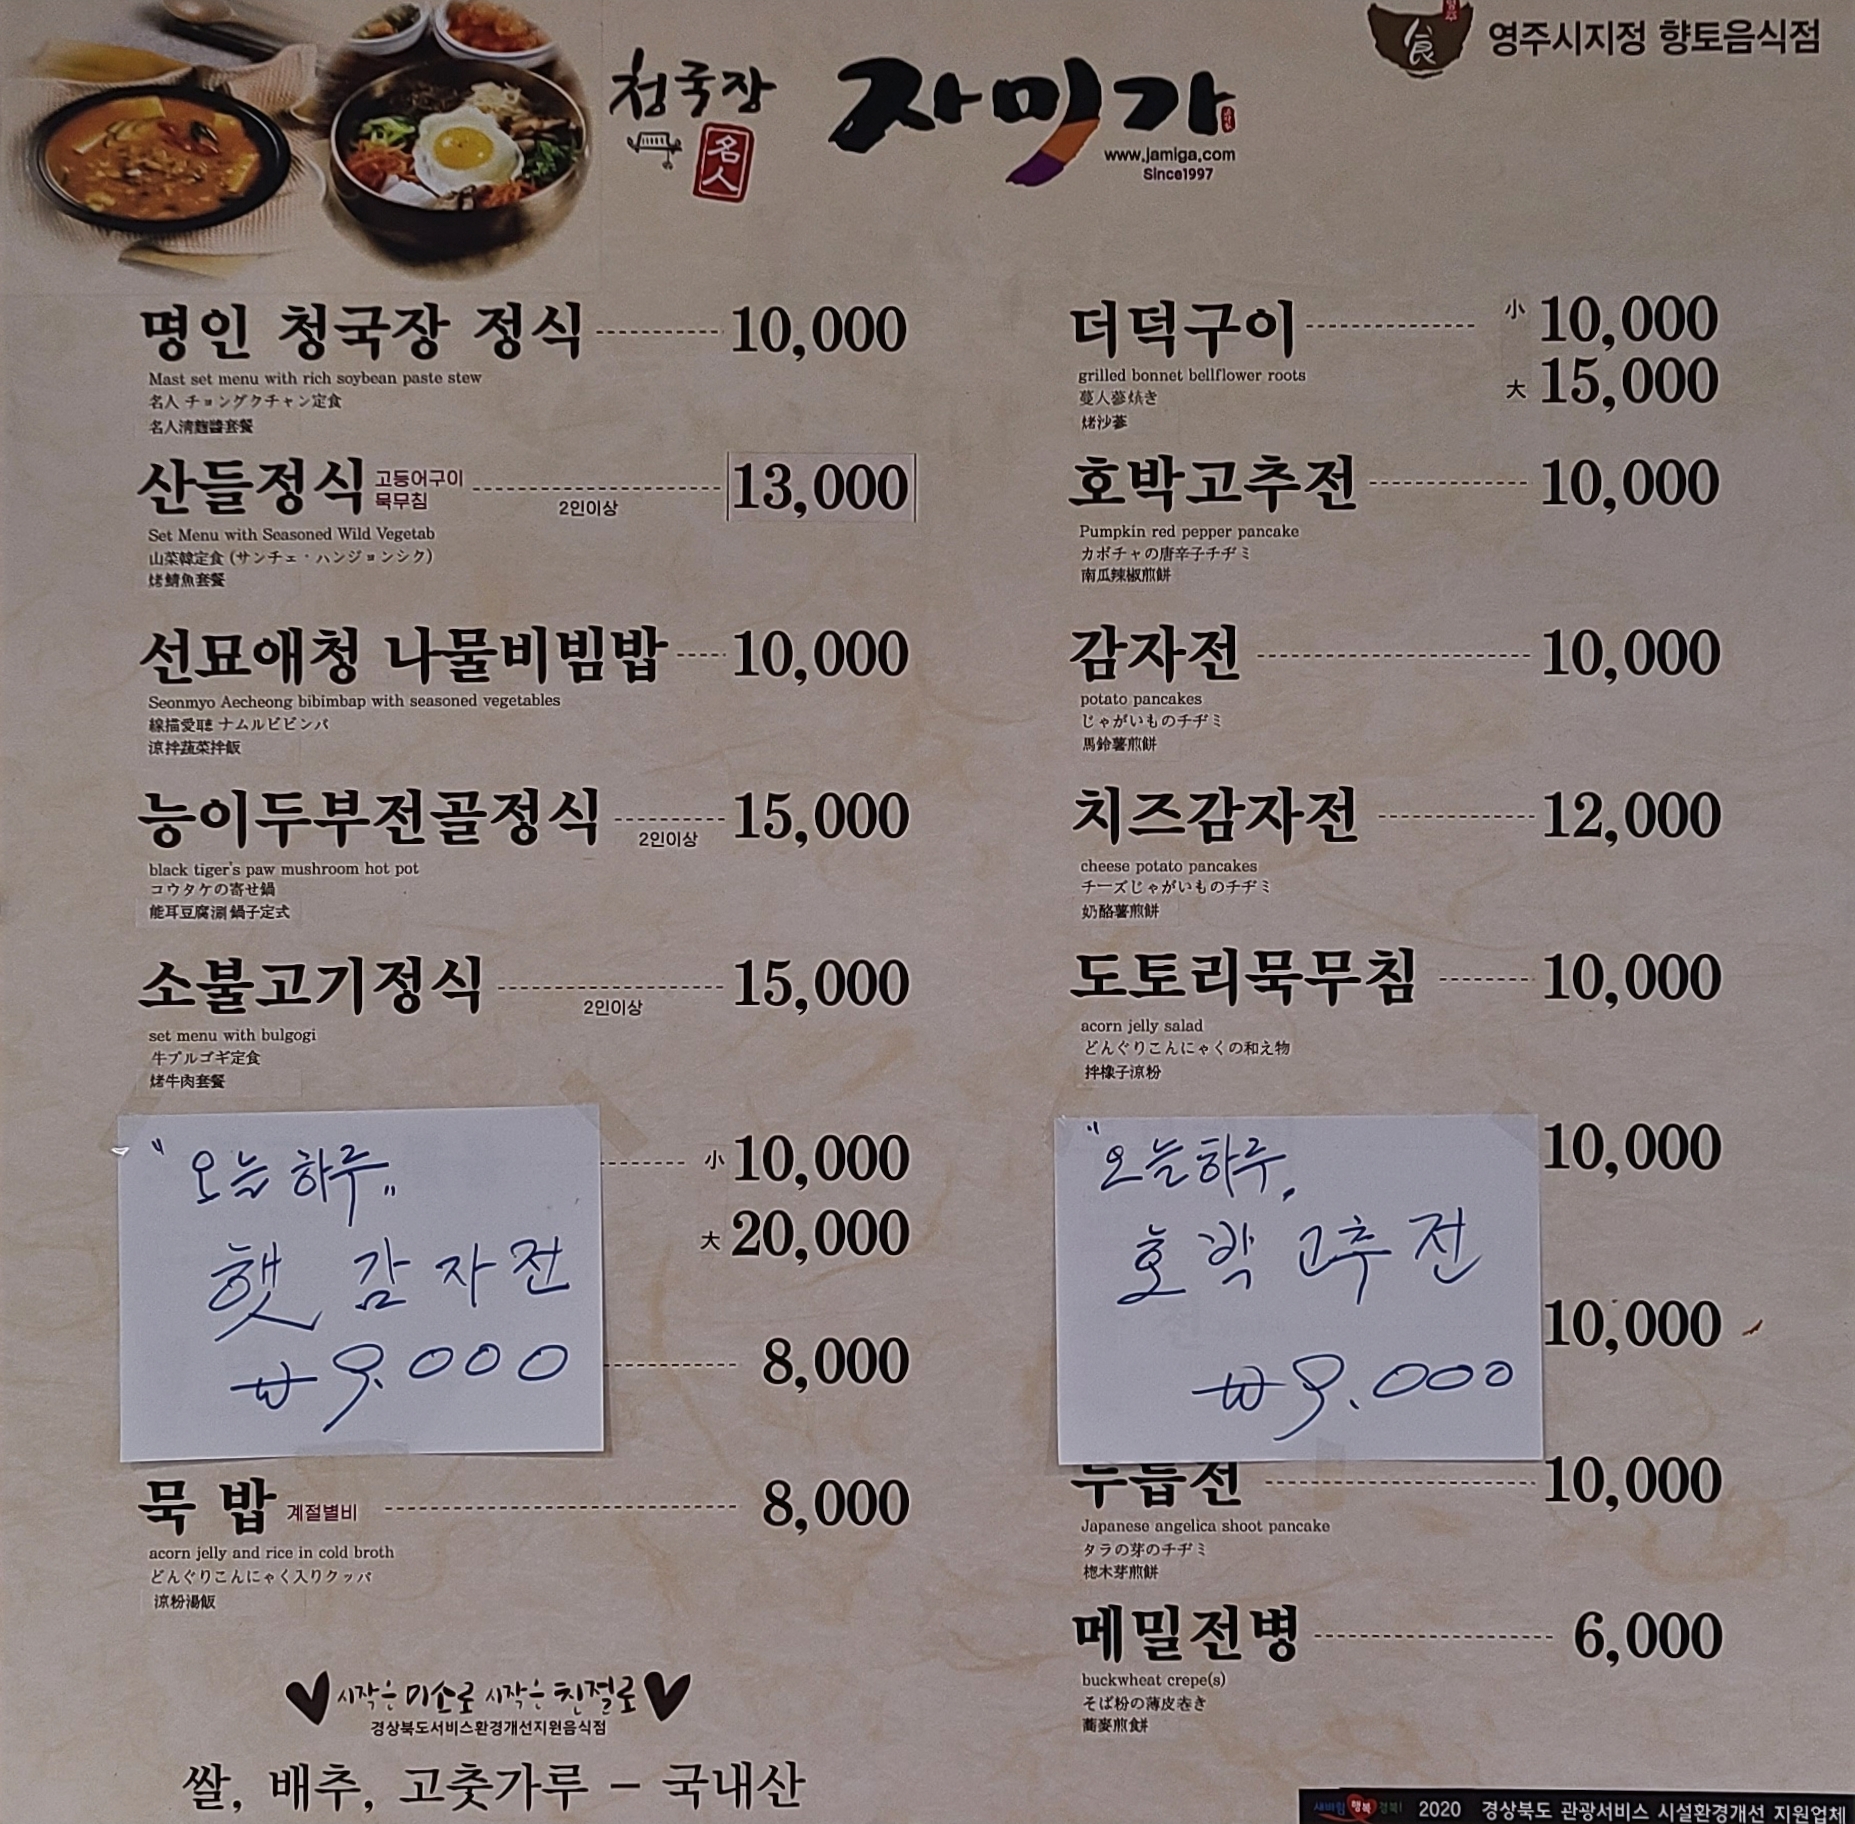 영주시지정 향토음식점
食
청국장
名人
자미가
www.jamiga.com
Since1997
명인 청국장 정식 10,000
Mast set menu with rich soybean paste stew
名人 チョングクチャン定食
名人淸麴醬套餐
산들정식 고등어구이 묵무침 2인이상 13,000
Set Menu with Seasoned Wild Vegetab
山菜韓定食 (サンチェ・ハンジョンシク)
烤鯖魚套餐
선묘애청 나물비빔밥 10,000
Seonmyo Aecheong bibimbap with seasoned vegetables
線描愛聴 ナムルビビンバ
涼拌蔬菜拌飯
능이두부전골정식 2인이상 15,000
black tiger's paw mushroom hot pot
コウタケの寄せ鍋
能耳豆腐涮 鍋子定式
소불고기정식 2인이상 15,000
set menu with bulgogi
牛プルゴギ定食
烤牛肉套餐
"오늘하루"
햇 감자전
₩9.000
小 10,000
大 20,000
8,000
묵 밥 계절별비 8,000
acorn jelly and rice in cold broth
どんぐりこんにゃく入りクッパ
涼粉湯飯
시작은 미소로 시작은 친절로
경상북도서비스환경개선지원음식점
쌀, 배추, 고춧가루 - 국내산
더덕구이 小 10,000
大 15,000
grilled bonnet bellflower roots
蔓人蔘焼き
烤沙蔘
호박고추전 10,000
Pumpkin red pepper pancake
カボチャの唐辛子チヂミ
南瓜辣椒煎餅
감자전 10,000
potato pancakes
じゃがいものチヂミ
馬鈴薯煎餅
치즈감자전 12,000
cheese potato pancakes
チーズじゃがいものチヂミ
奶酪薯煎餅
도토리묵무침 10,000
acorn jelly salad
どんぐりこんにゃくの和え物
拌橡子涼粉
"오늘하루,
호박고추전
₩9.000
10,000
10,000
두릅전 10,000
Japanese angelica shoot pancake
タラの芽のチヂミ
楤木芽煎餅
메밀전병 6,000
buckwheat crepe(s)
そば粉の薄皮巻き
蕎麥煎餅
새바람 행복 경북! 2020 경상북도 관광서비스 시설환경개선 지원업체